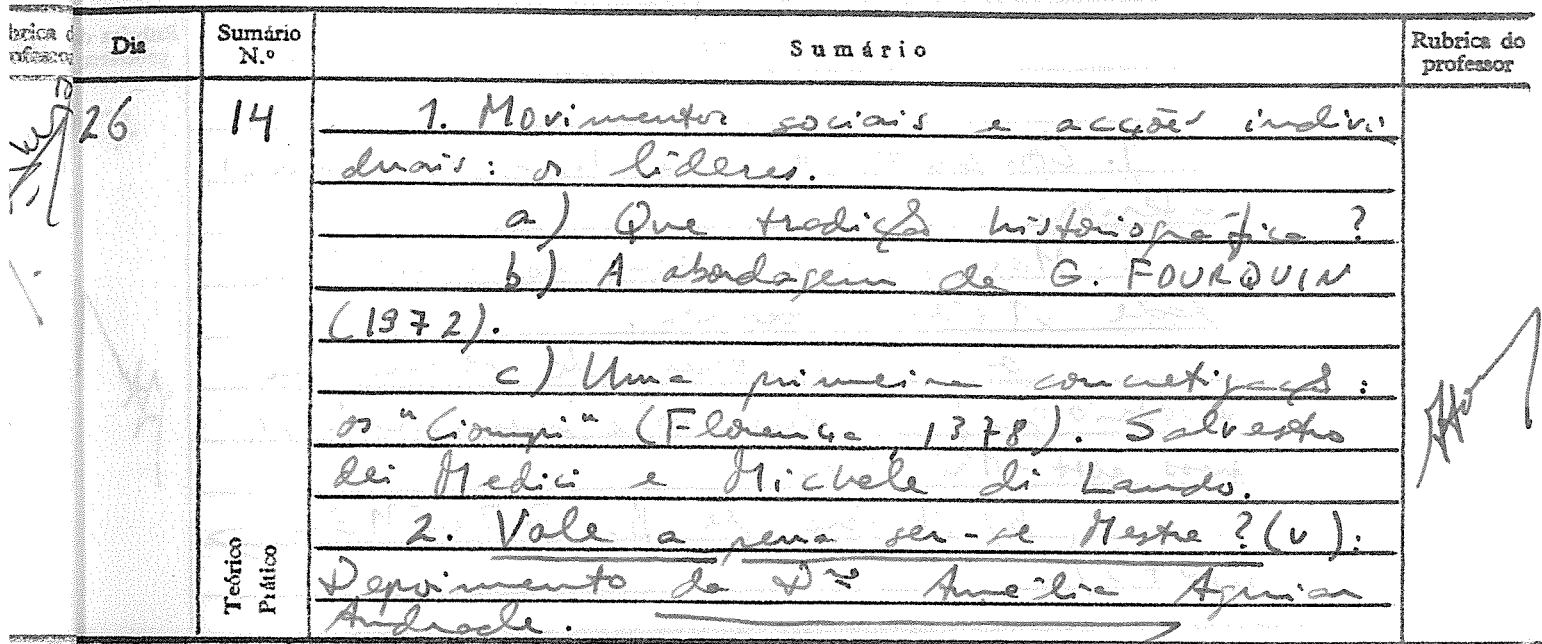 Dia
Sumário N.º
Sumário
Rubrica do professor
26
14
1. Movimentos sociais e acções indivi
duais: os líderes.
a) Que tradição historiográfica?
b) A abordagem de G. FOURQUIN
(1972).
c) Uma primeira concretização:
os "Ciompi" (Florença, 1378). Salvestro
dei Medici e Michele di Lando.
2. Vale a pena ser-se Mestre? (V):
Depoimento da Drª Amélia Aguiar
Andrade.
Teórico
Prático